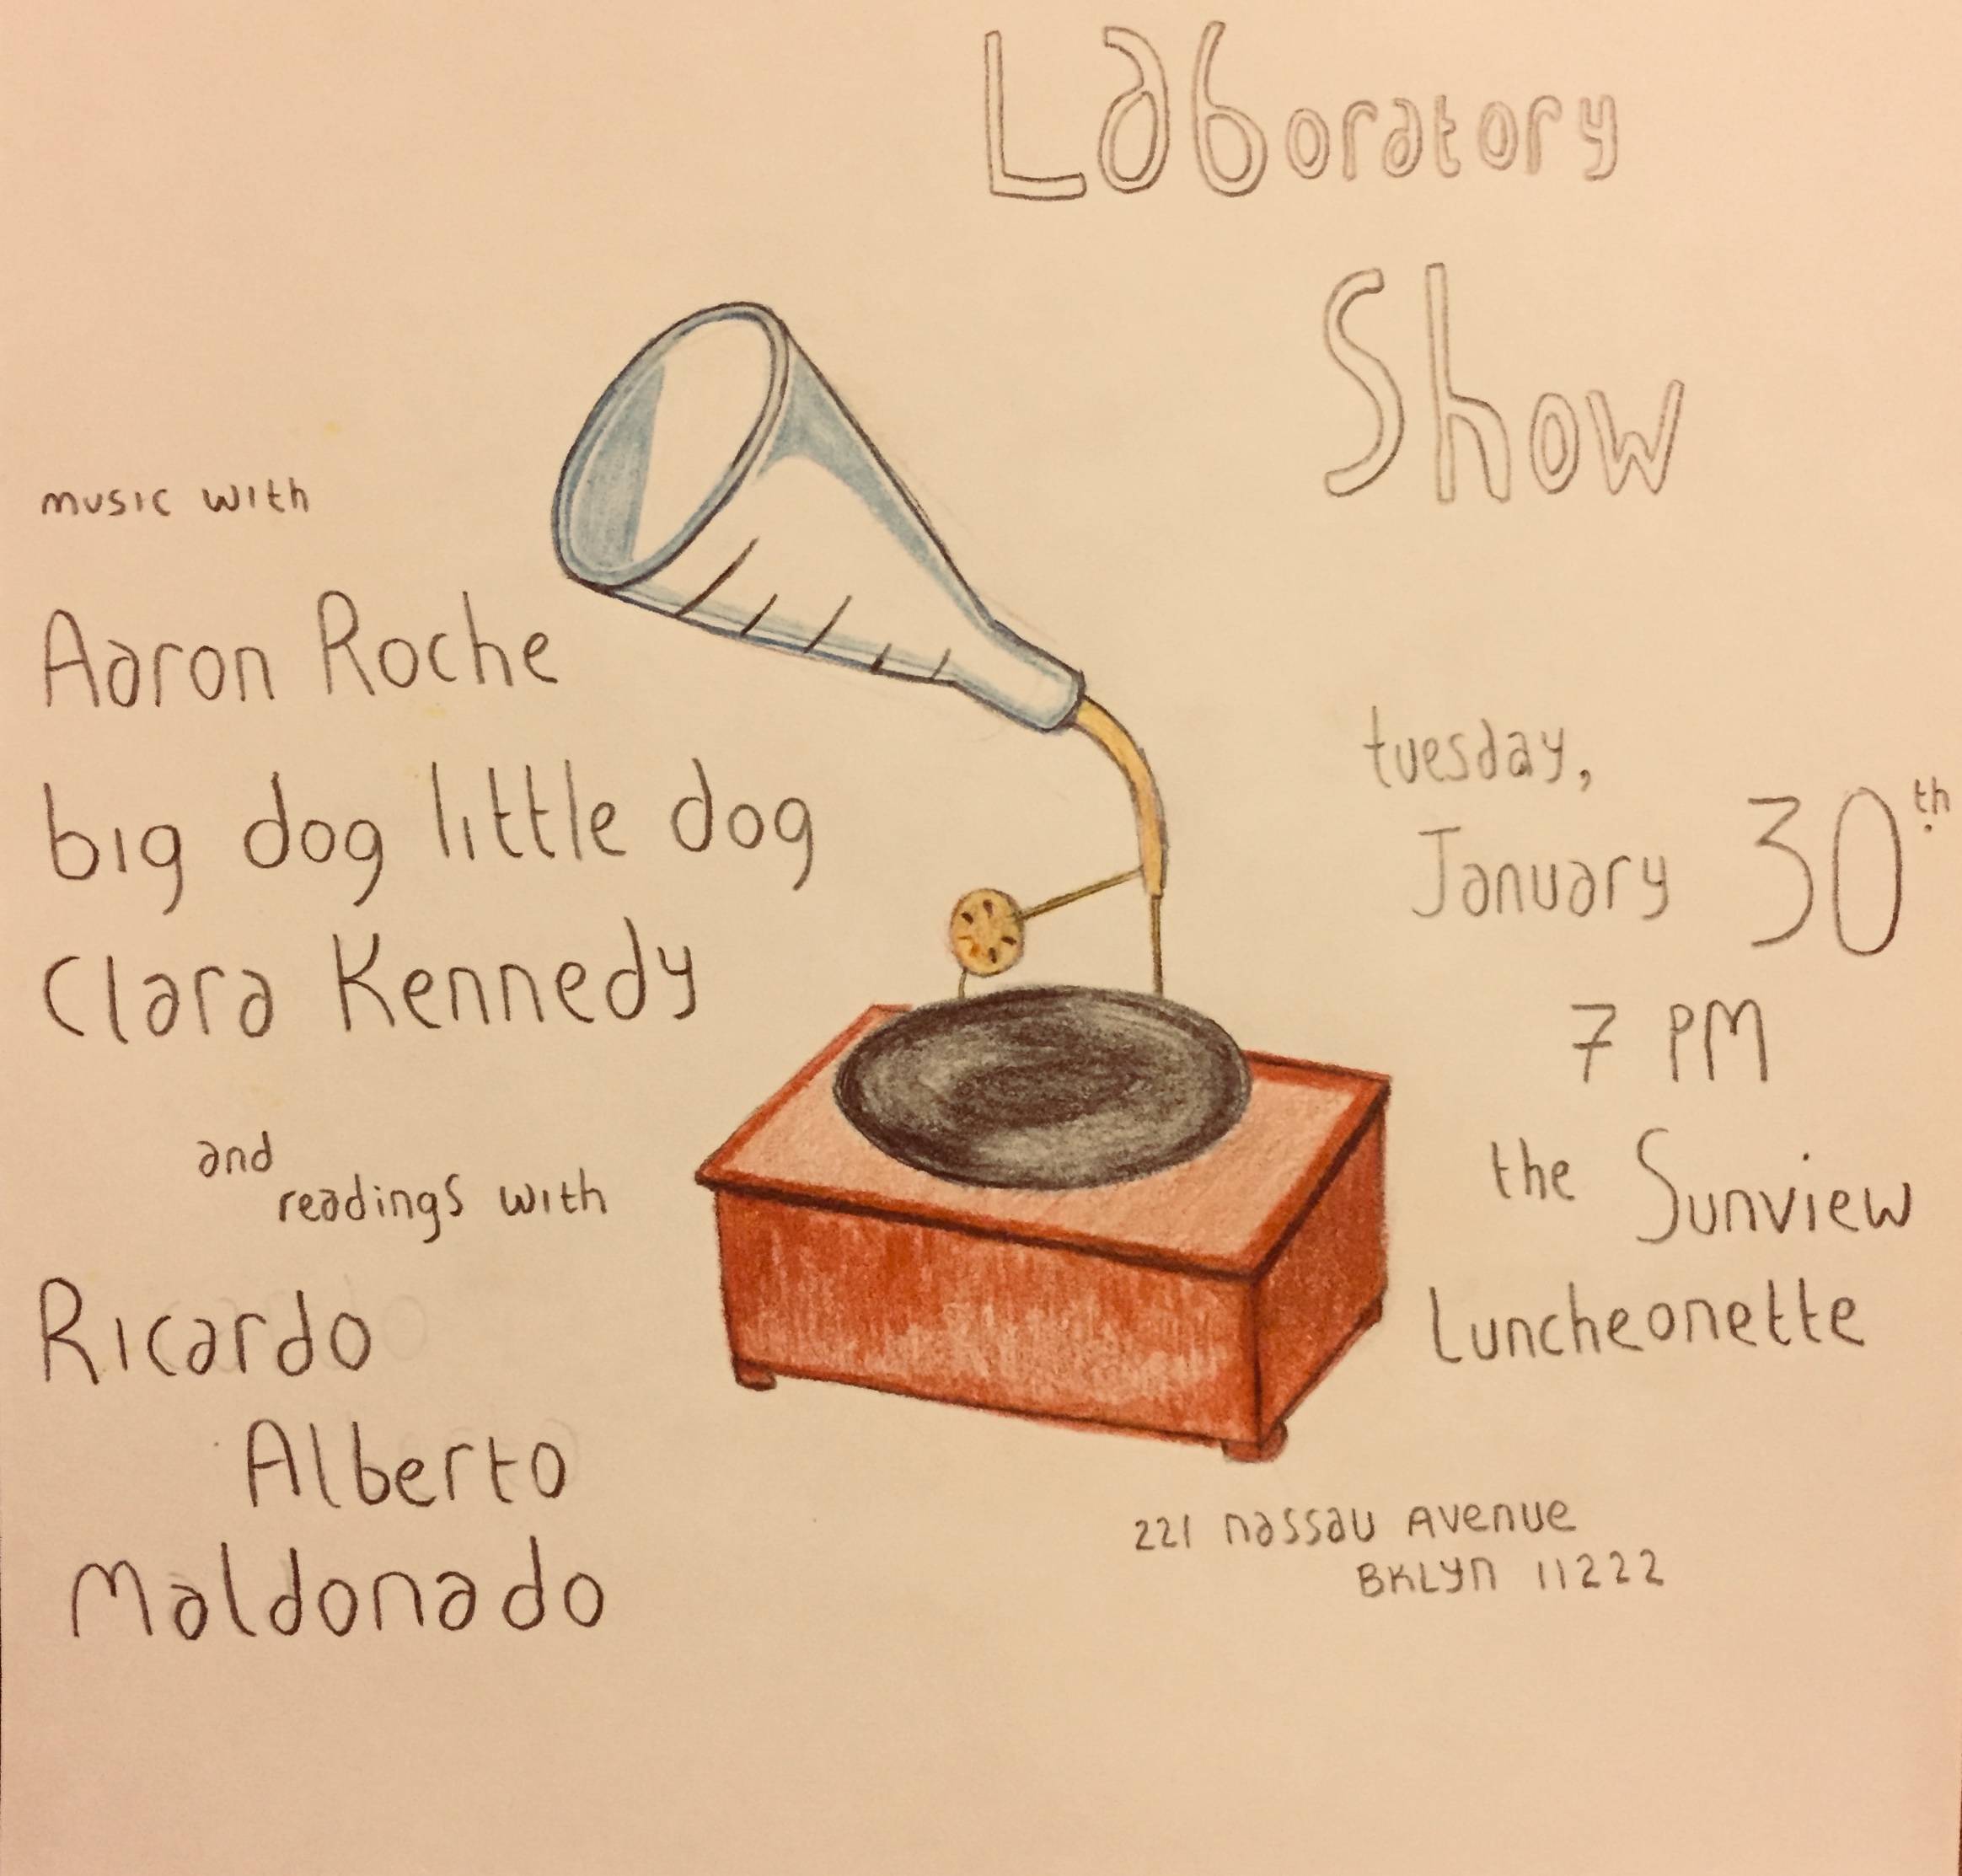 Laboratory
Show
music with
Aaron Roche
big dog little dog
Clara Kennedy
and
readings with
Ricardo
Alberto
Maldonado
tuesday,
January 30th
7 PM
the Sunview
Luncheonette
221 nassau Avenue
BKLYn 11222